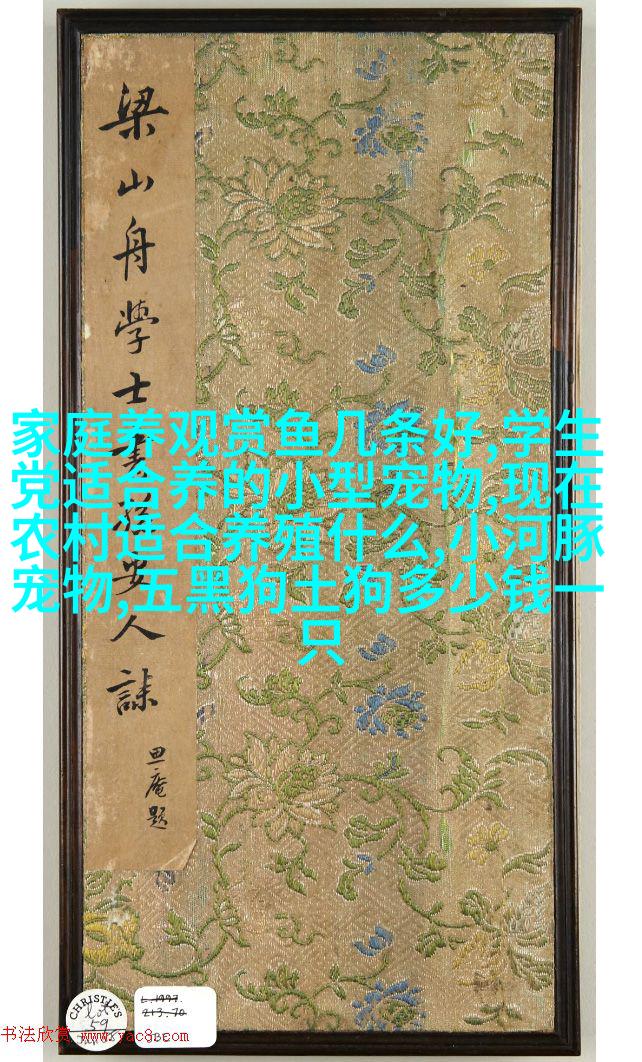 梁山舟學士書
安人誄
思庵題
家庭养观赏鱼几条好,学生
党适合养的小型宠物,现在
农村适合养殖什么,小河豚
宠物,五黑狗土狗多少钱一
只
CHRISTIE'S
Lot
59
L.1997.
213.70
书法欣赏 www.yac8.com